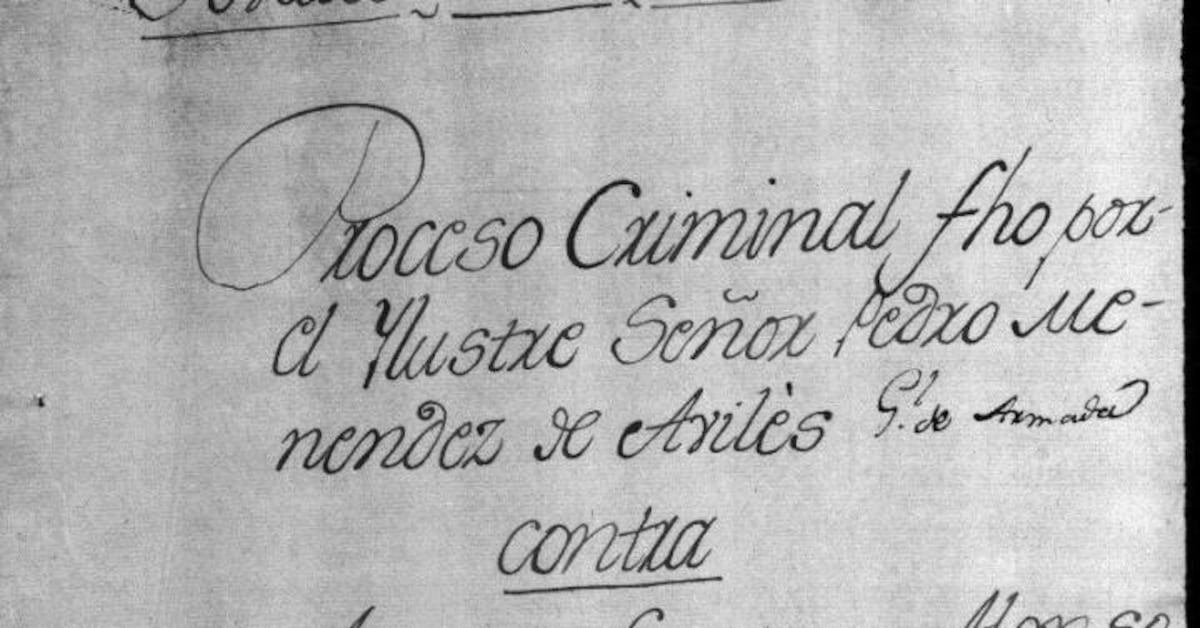 Proceso Criminal fho por-
el Ylustre Señor Pedro Me-
nendez de Avilès G.l de Armada
contra
Alonso